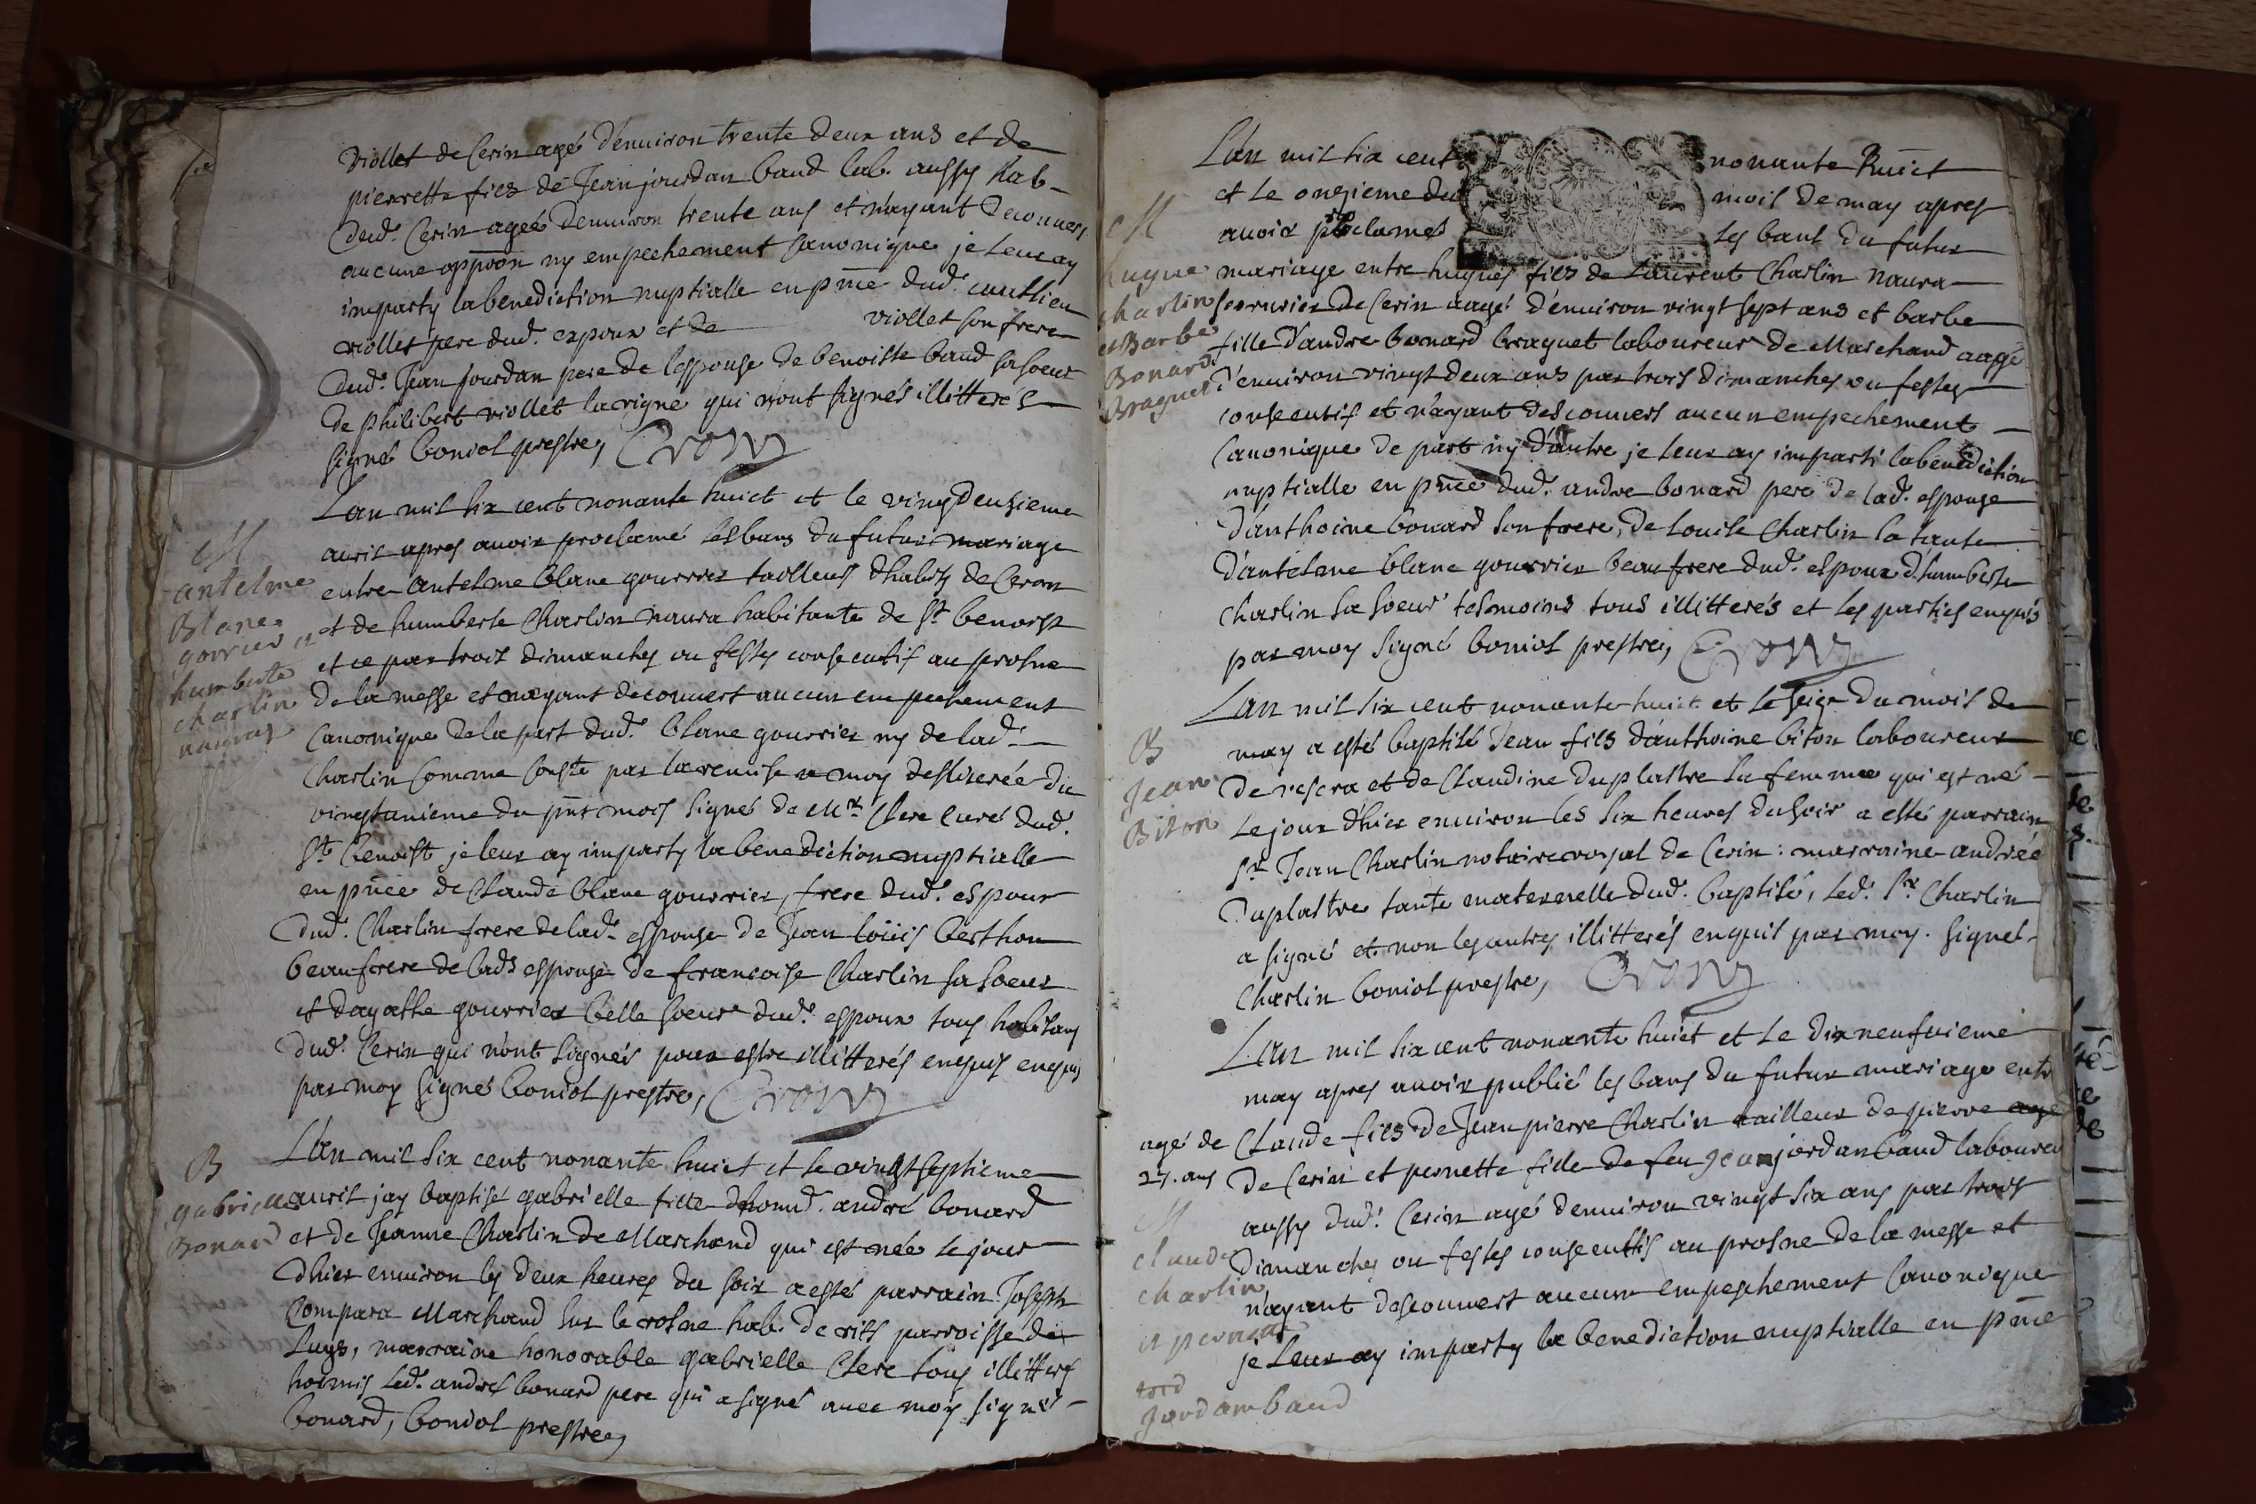 viollet de Cerin agé d'enuiron trente deux ans et de
pierrette fies de Jean jourdan baud lab. aussy hab
dud. Cerin ageé denuiron trente ans et n'ayant deconuers
aucune oppoon ny empechement canonique je leur ay
imparty la benediction nuptialle en pnce dud.
viollet pere dud. expoux et de viollet son frere
dud. Jean Jourdan pere de lespouse de benoiste baud sa soeur
de philibert viollet lavigne qui n'ont signés illitterés
signé boniol prestre,
Lan mil six cent nonante huict et le vingdeuzieme
auril apres auoir proclamé les bans du futur mariage
entre antelme blanc gourrier tailleur dhabits de Cerin
et de humberte Charlin naura habitante de St benoist
et ce par trois dimanches ou festes consecutif au prosne
de la messe et nayant deconuert aucun empechement
Canonique de la part dud. blanc gourrier ny de lad.
Charlin comme conste par la remise a moy desliurée du
vingtunieme du pnt mois signé de Mre Clerc curé dud.
St benoist je leur ay imparty la benediction nuptialle
en pnce de Claude blanc gourrier, frere dud. espoux
dud. Charlin frere de lad. espouse de Jean loüis berthon
beaufrere de lade espouse de francoise Charlin sa soeur
et dagathe gourrier belle soeur dud. espoux tous habitans
dud. Cerin qui n'ont signés pour estre illitterés enquis enquis
par moy signé boniol prestre,
M
antelme
Blanc
gorrier et
humberte
charlin
nauraz
L'an mil six cent nonante huict et le vingtseptieme
auril jay baptisé gabrielle fille dhonn. andré bonard
et de Jeanne Charlin de Marchand qui est née le jour
dhier enuiron les deux heures du soir a esté parrain Joseph
Compara Marchand sur le rosne hab. de parroisse de
Luys, marraine honorable gabrielle Clerc tous illitterés
hormis led. andres bonard pere qui a signé auec moy signé
bonard, boniol prestre,
B
gabrielle
Bonard
L'an mil six cent nonante huict
et le onzieme du mois de may apres
auoir proclamé les bans du futur
mariage entre hugues fils de Laurent Charlin naura
serrurier de Cerin aagé d'enuiron vingt sept ans et barbe
fille d'andre bonard braguet laboureur de Marchand aagé
d'enuiron vingt deux ans par trois dimanches ou festes
consecutif et n'ayant desconuert aucun empechement
Canonique de part ny d'autre je leur ay imparti la benediction
nuptialle en pnce dud. andre bonard pere de lad. espouse
d'anthoine bonard son frere, de Louise Charlin sa tante
d'antelme blanc gourrier beau frere dud. espoux d'humberte
Charlin sa soeur tesmoins tous illitterés et les parties enquis
par moy signé boniol prestre,
M
hugue
charlin
et Barbe
Bonard
Braguet
Lan mil six cent nonante huict et le seize du mois de
may a esté baptisé Jean fils d'anthoine biton laboureur
de et de Claudine duplastre sa femme qui est né
le jour d'hier enuiron les six heures du soir a esté parrain
Sr Jean Charlin notaire royal de Cerin : marraine andrée
duplastre tante maternelle dud. baptisé, led. Sr Charlin
a signé et non les autres illitterés enquis par moy. signet
Charlin boniol prestre,
B
Jean
Biton
Lan mil six cent nonante huict et le dix neufuieme
may apres auoir publié les bans du futur mariage entr
Claude fils de Jean pierre Charlin tailleur de pierre agé
agé de
27. ans
de Cerin et pernette fille de feu Jean jordan baud laboureu
aussy dud. Cerin agé denuiron vingt six ans par trois
dimanches ou festes consecutifs au prosne de la messe et
n'ayant desconuert aucun empeschement Canonique
je leur ay imparty la benediction nuptialle en pnce
M
claude
charlin
et pernette
Jordambaud